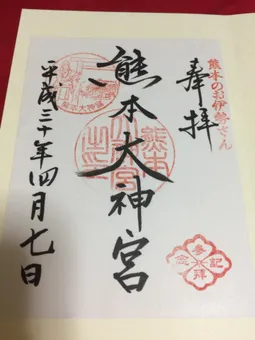 熊本のお伊勢さん
奉拝
熊本大神宮
平成三十年四月七日
熊本大神宮
参拝記念